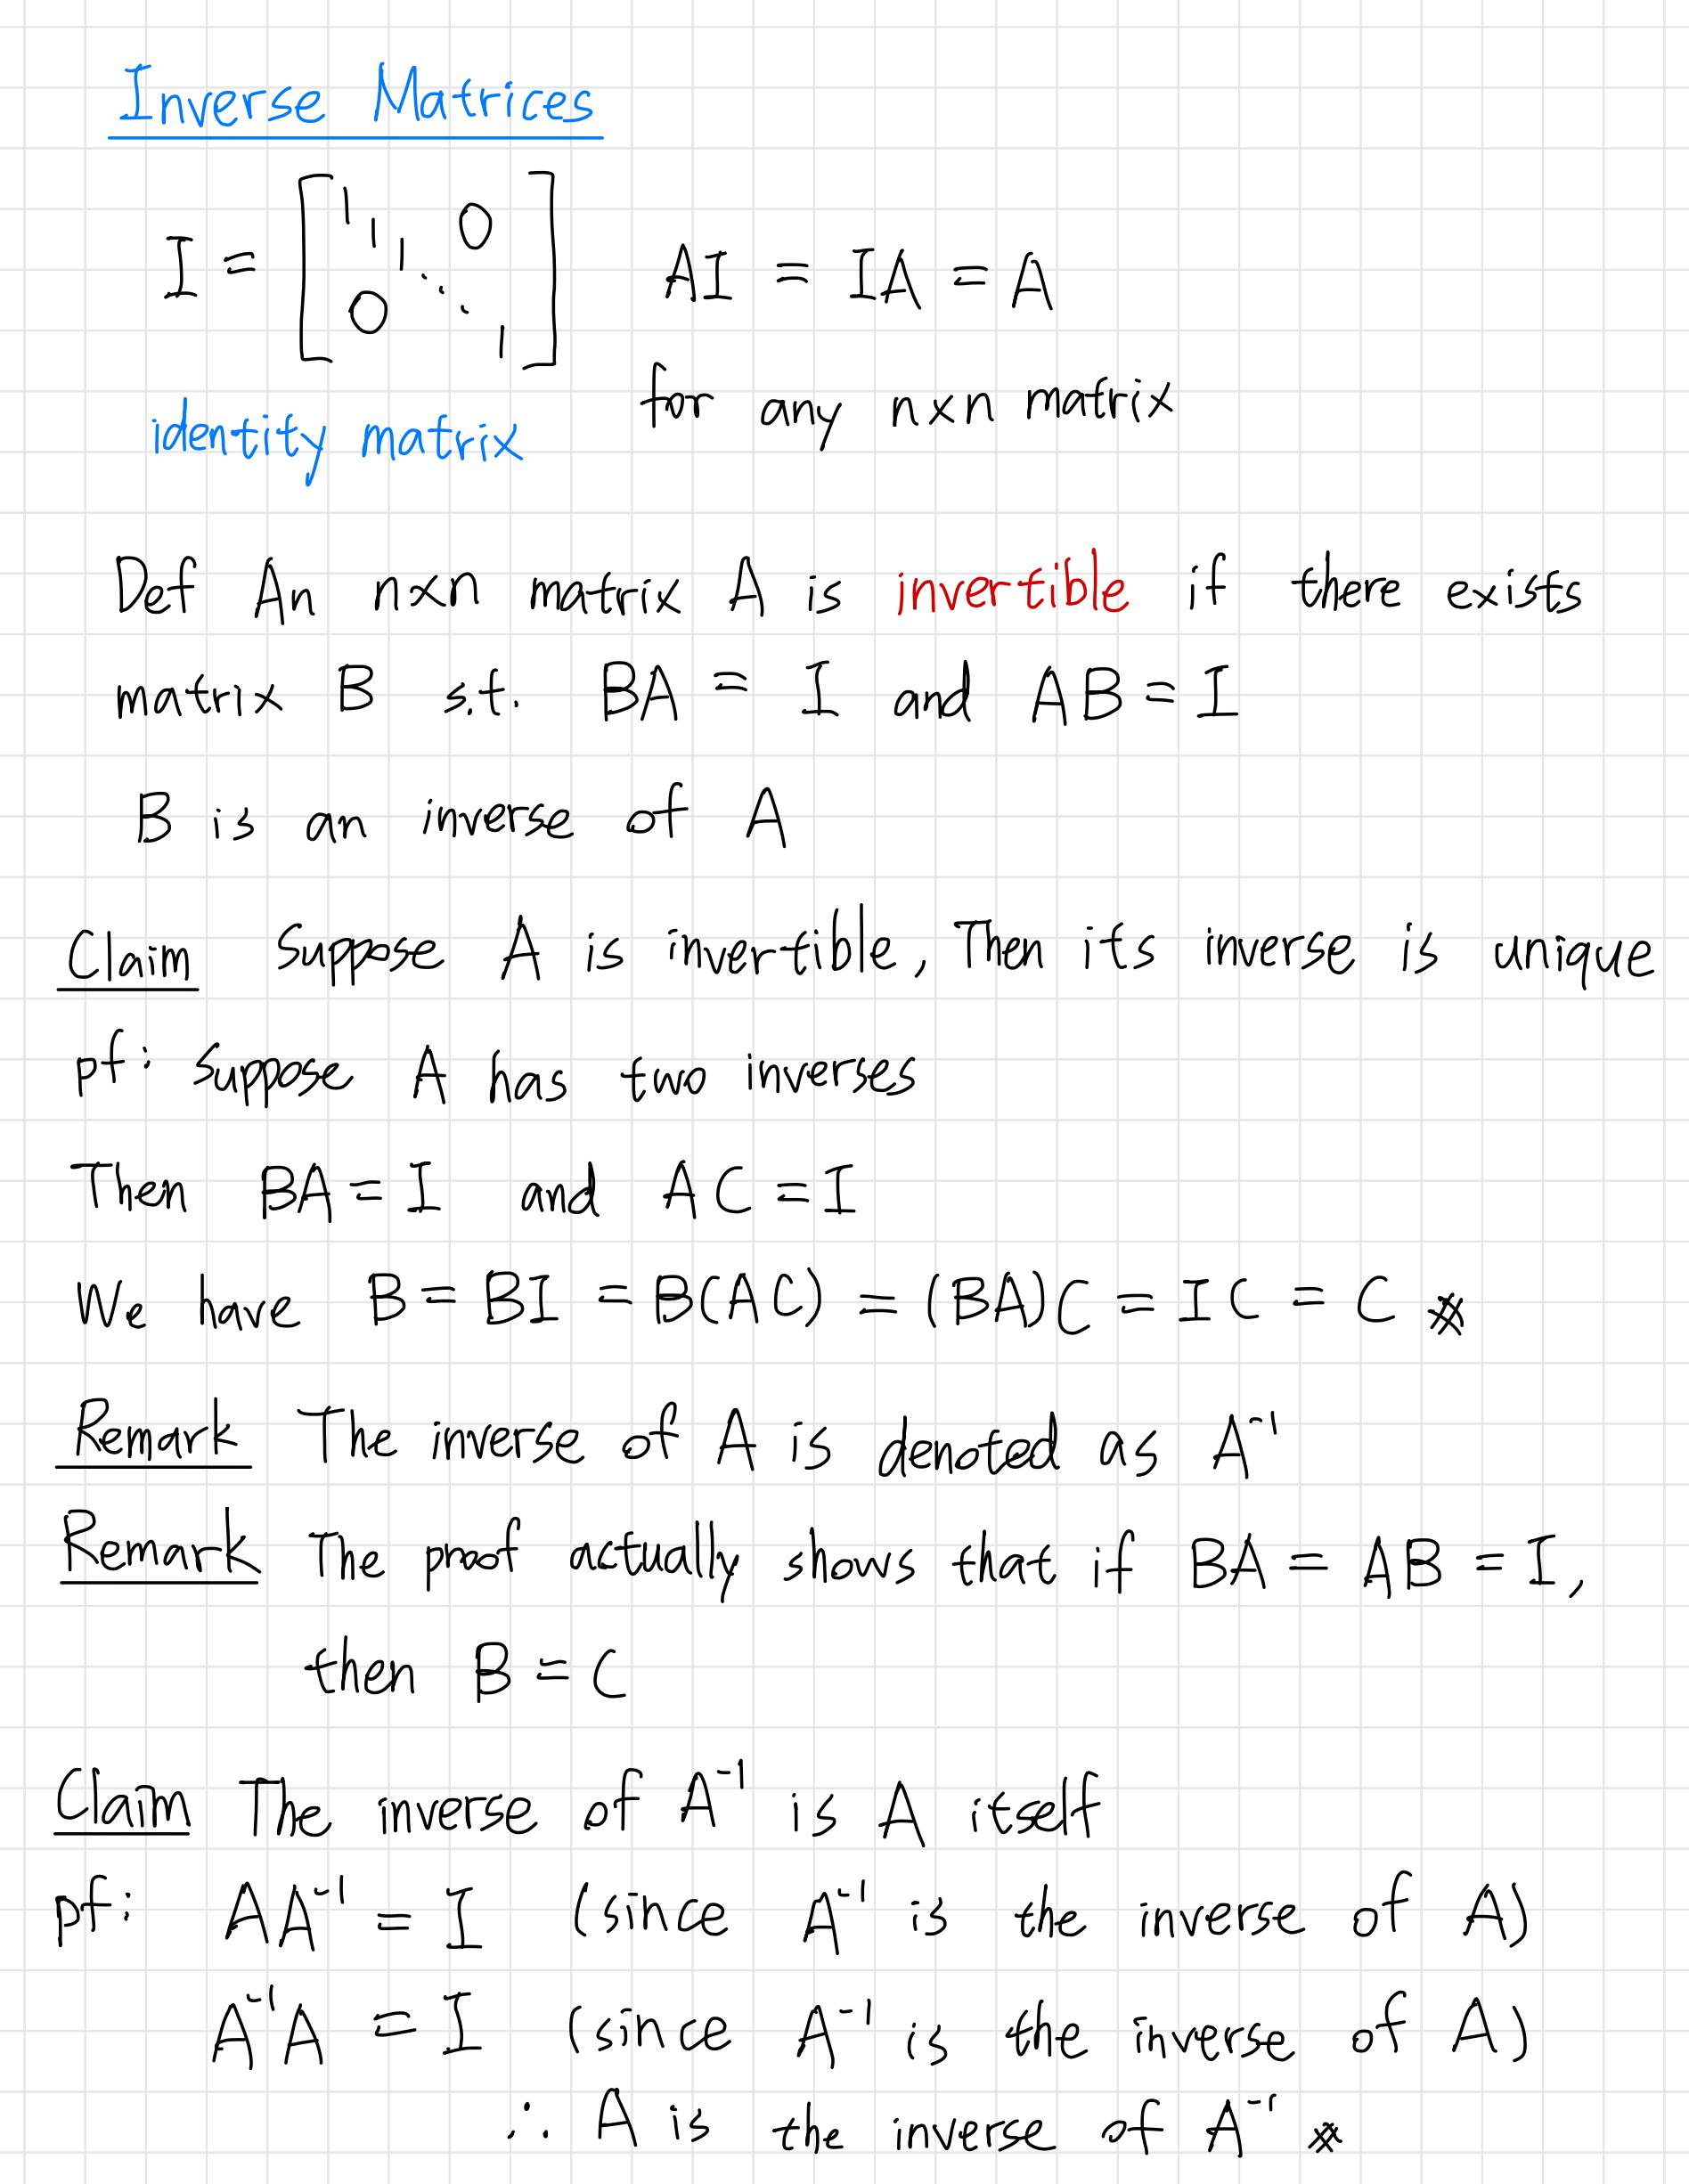 Inverse Matrices
I = [ 1 1 1 ⋱ 1 0 0 ] AI = IA = A
identity matrix for any n×n matrix
Def An n×n matrix A is invertible if there exists
matrix B s.t. BA = I and AB = I
B is an inverse of A
Claim Suppose A is invertible, Then its inverse is unique
pf: Suppose A has two inverses
Then BA = I and AC = I
We have B = BI = B(AC) = (BA)C = IC = C ※
Remark The inverse of A is denoted as A⁻¹
Remark The proof actually shows that if BA = AB = I,
then B = C
Claim The inverse of A⁻¹ is A itself
pf: AA⁻¹ = I (since A⁻¹ is the inverse of A)
A⁻¹A = I (since A⁻¹ is the inverse of A)
∴ A is the inverse of A⁻¹ ※